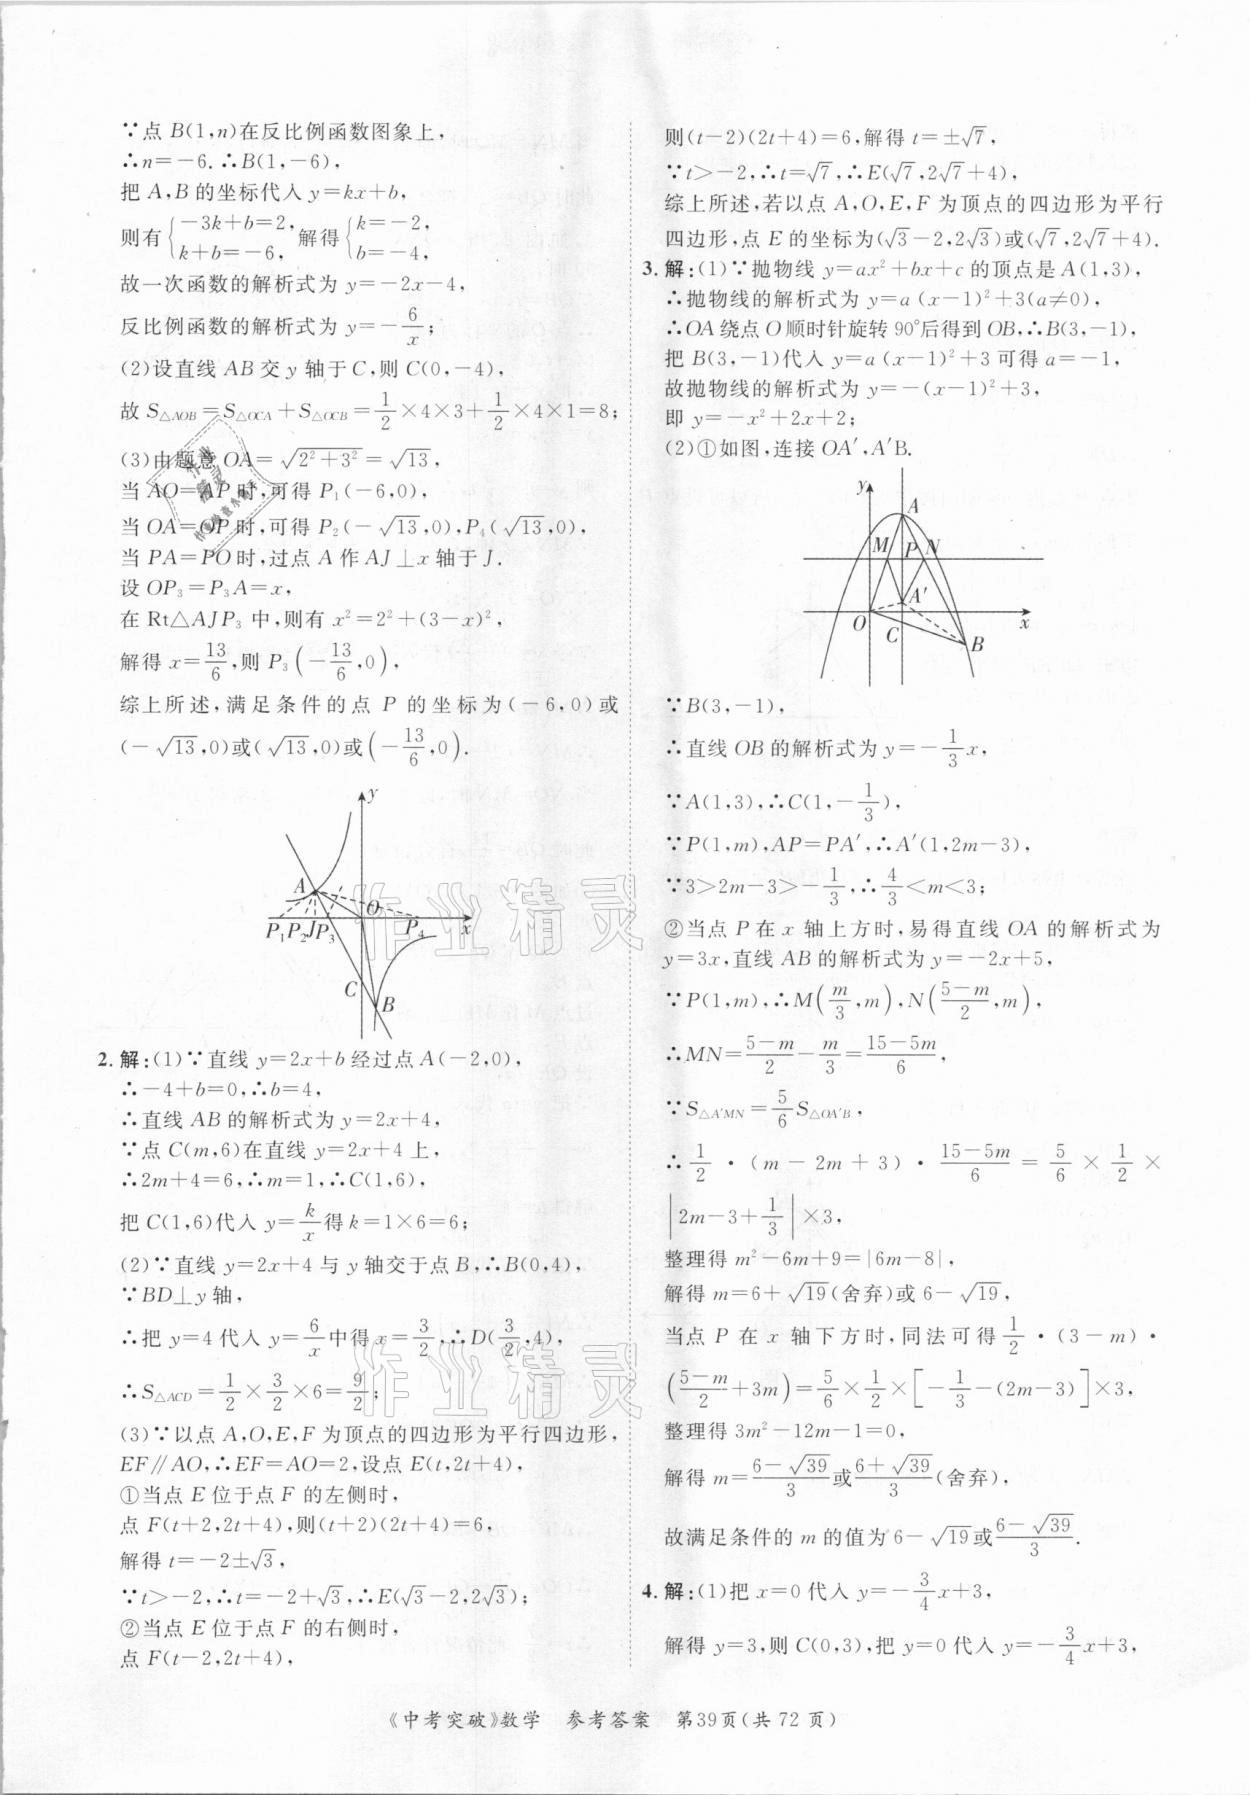 ∵点 B(1,n)在反比例函数图象上,
∴n=-6.∴B(1,-6),
把 A,B 的坐标代入 y=kx+b,
则有{-3k+b=2, k+b=-6, 解得{k=-2, b=-4,
故一次函数的解析式为 y=-2x-4,
反比例函数的解析式为 y=-6/x;
(2)设直线 AB 交 y 轴于 C,则 C(0,-4),
故 S△AOB=S△OCA+S△OCB=1/2×4×3+1/2×4×1=8;
(3)由题意 OA=√(2²+3²)=√13,
当 AO=AP 时,可得 P₁(-6,0),
当 OA=OP 时,可得 P₂(-√13,0),P₄(√13,0),
当 PA=PO 时,过点 A 作 AJ⊥x 轴于 J.
设 OP₃=P₃A=x,
在 Rt△AJP₃ 中,则有 x²=2²+(3-x)²,
解得 x=13/6,则 P₃(-13/6,0),
综上所述,满足条件的点 P 的坐标为(-6,0)或
(-√13,0)或(√13,0)或(-13/6,0).
y
A
O
P₁ P₂ J P₃ P₄ x
C
B
2. 解:(1)∵直线 y=2x+b 经过点 A(-2,0),
∴-4+b=0,∴b=4,
∴直线 AB 的解析式为 y=2x+4,
∵点 C(m,6)在直线 y=2x+4 上,
∴2m+4=6,∴m=1,∴C(1,6),
把 C(1,6)代入 y=k/x得 k=1×6=6;
(2)∵直线 y=2x+4 与 y 轴交于点 B,∴B(0,4),
∵BD⊥y 轴,
∴把 y=4 代入 y=6/x中得 x=3/2,∴D(3/2,4),
∴S△ACD=1/2×3/2×6=9/2;
(3)∵以点 A,O,E,F 为顶点的四边形为平行四边形,
EF∥AO,∴EF=AO=2,设点 E(t,2t+4),
①当点 E 位于点 F 的左侧时,
点 F(t+2,2t+4),则(t+2)(2t+4)=6,
解得 t=-2±√3,
∵t>-2,∴t=-2+√3,∴E(√3-2,2√3);
②当点 E 位于点 F 的右侧时,
点 F(t-2,2t+4),
则(t-2)(2t+4)=6,解得 t=±√7,
∵t>-2,∴t=√7,∴E(√7,2√7+4),
综上所述,若以点 A,O,E,F 为顶点的四边形为平行
四边形,点 E 的坐标为(√3-2,2√3)或(√7,2√7+4).
3. 解:(1)∵抛物线 y=ax²+bx+c 的顶点是 A(1,3),
∴抛物线的解析式为 y=a(x-1)²+3(a≠0),
∴OA 绕点 O 顺时针旋转 90°后得到 OB,∴B(3,-1),
把 B(3,-1)代入 y=a(x-1)²+3 可得 a=-1,
故抛物线的解析式为 y=-(x-1)²+3,
即 y=-x²+2x+2;
(2)①如图,连接 OA′,A′B.
y
A
M P N
A′
O C x
B
∵B(3,-1),
∴直线 OB 的解析式为 y=-1/3x,
∵A(1,3),∴C(1,-1/3),
∵P(1,m),AP=PA′,∴A′(1,2m-3),
∵3>2m-3>-1/3,∴4/3<m<3;
②当点 P 在 x 轴上方时,易得直线 OA 的解析式为
y=3x,直线 AB 的解析式为 y=-2x+5,
∵P(1,m),∴M(m/3,m),N((5-m)/2,m),
∴MN=(5-m)/2-m/3=(15-5m)/6,
∵S△A′MN=5/6S△OA′B,
∴1/2·(m-2m+3)·(15-5m)/6=5/6×1/2×
|2m-3+1/3|×3,
整理得 m²-6m+9=|6m-8|,
解得 m=6+√19(舍弃)或 6-√19,
当点 P 在 x 轴下方时,同法可得1/2·(3-m)·
((5-m)/2+3m)=5/6×1/2×[-1/3-(2m-3)]×3,
整理得 3m²-12m-1=0,
解得 m=(6-√39)/3或(6+√39)/3(舍弃),
故满足条件的 m 的值为 6-√19或(6-√39)/3.
4. 解:(1)把 x=0 代入 y=-3/4x+3,
解得 y=3,则 C(0,3),把 y=0 代入 y=-3/4x+3,
《中考突破》数学 参考答案 第39页(共 72 页)
作业精灵
作业精灵